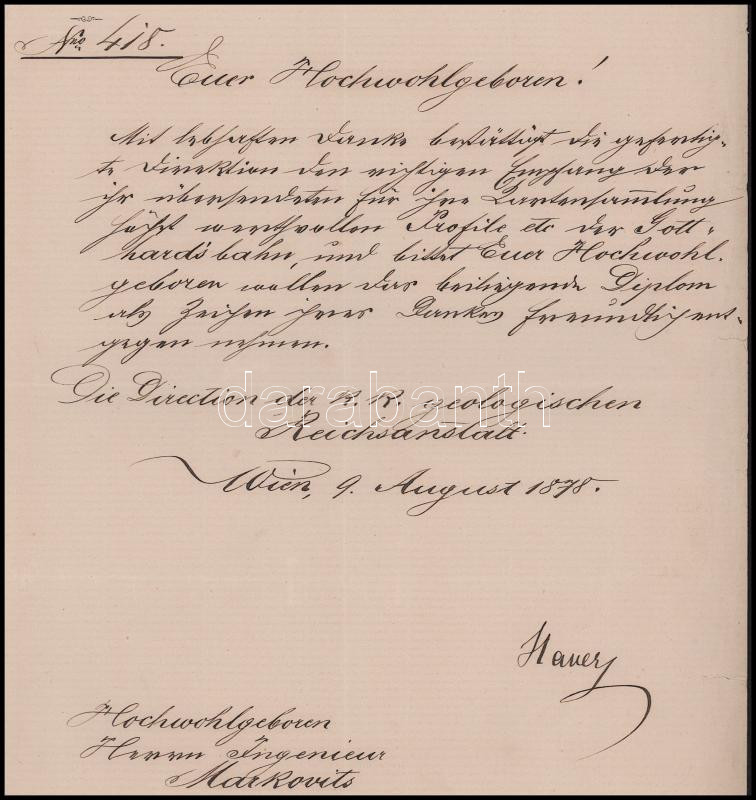 Nro 418.
Euer Hochwohlgeboren!
Mit lebhaften Danke bestättigt die gefertig-
te Direktion den richtigen Empfang der
ihr übersendeten für ihre Kartensammlung
höchst werthvollen Profile etc der Gott-
hardsbahn, und bittet Euer Hochwohl-
geboren wollen das beiliegende Diplom
als Zeichen ihres Dankes freundlichent-
gegen nehmen.
Die Direction der K. K. geologischen
Reichsanstalt.
Wien, 9. August 1878.
Hauer
Hochwohlgeboren
Herrn Ingenieur
Markovits
darabanth